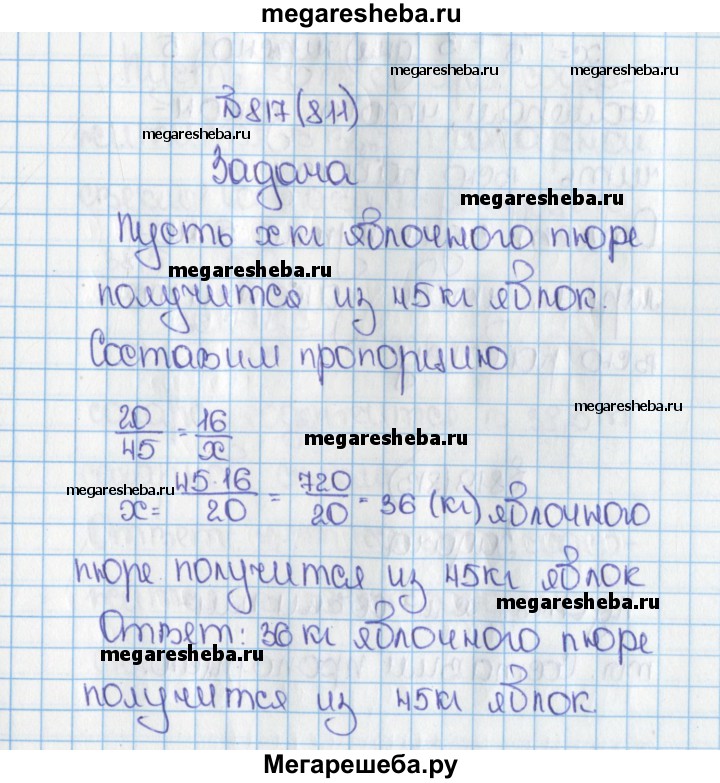 megaresheba.ru
megaresheba.ru megaresheba.ru
№817(811)
megaresheba.ru
Задача
megaresheba.ru
Пусть x кг яблочного пюре
megaresheba.ru
получится из 45кг яблок.
Составим пропорцию
megaresheba.ru
20/45 = 16/x
megaresheba.ru
megaresheba.ru
x = 45·16/20 = 720/20 = 36 (кг) яблочного
пюре получится из 45кг яблок
megaresheba.ru
Ответ: 36 кг яблочного пюре
megaresheba.ru
получится из 45кг яблок.
Мегарешеба.ру